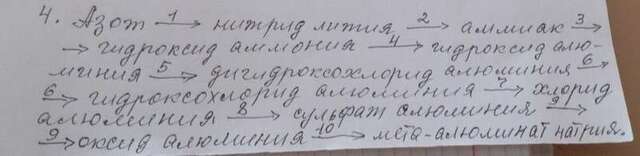 4. Азот 1→ нитрид лития 2→ аммиак 3→
→ гидроксид аммония 4→ гидроксид алю-
миния 5→ дигидроксохлорид алюминия 6→
6→ гидроксохлорид алюминия 7→ хлорид
алюминия 8→ сульфат алюминия 9→
9→ оксид алюминия 10→ мета-алюминат натрия.